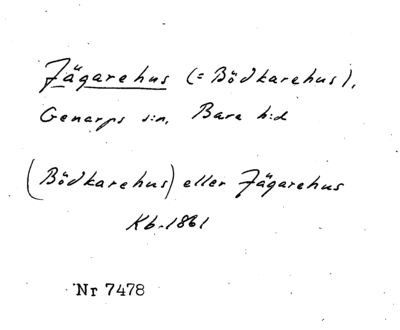 Jägarehus (= Bödkarehus),
Genarps s:n, Bara h:d
(Bödkarehus) eller Jägarehus
Kb. 1861
Nr 7478